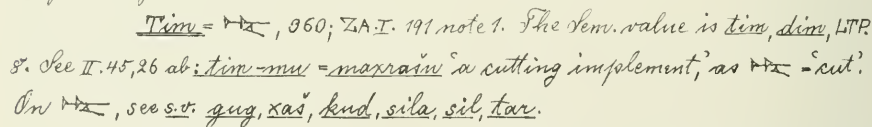 Tim = 𒁴, 960; ZA. I. 191 note 1. The Sem. value is tim, dim, LTP.
8. See II. 45, 26 ab: tim-mu = maxrašu 'a cutting implement,' as = 'cut'.
On , see s.v. gug, xaš, kud, sila, sil, tar.